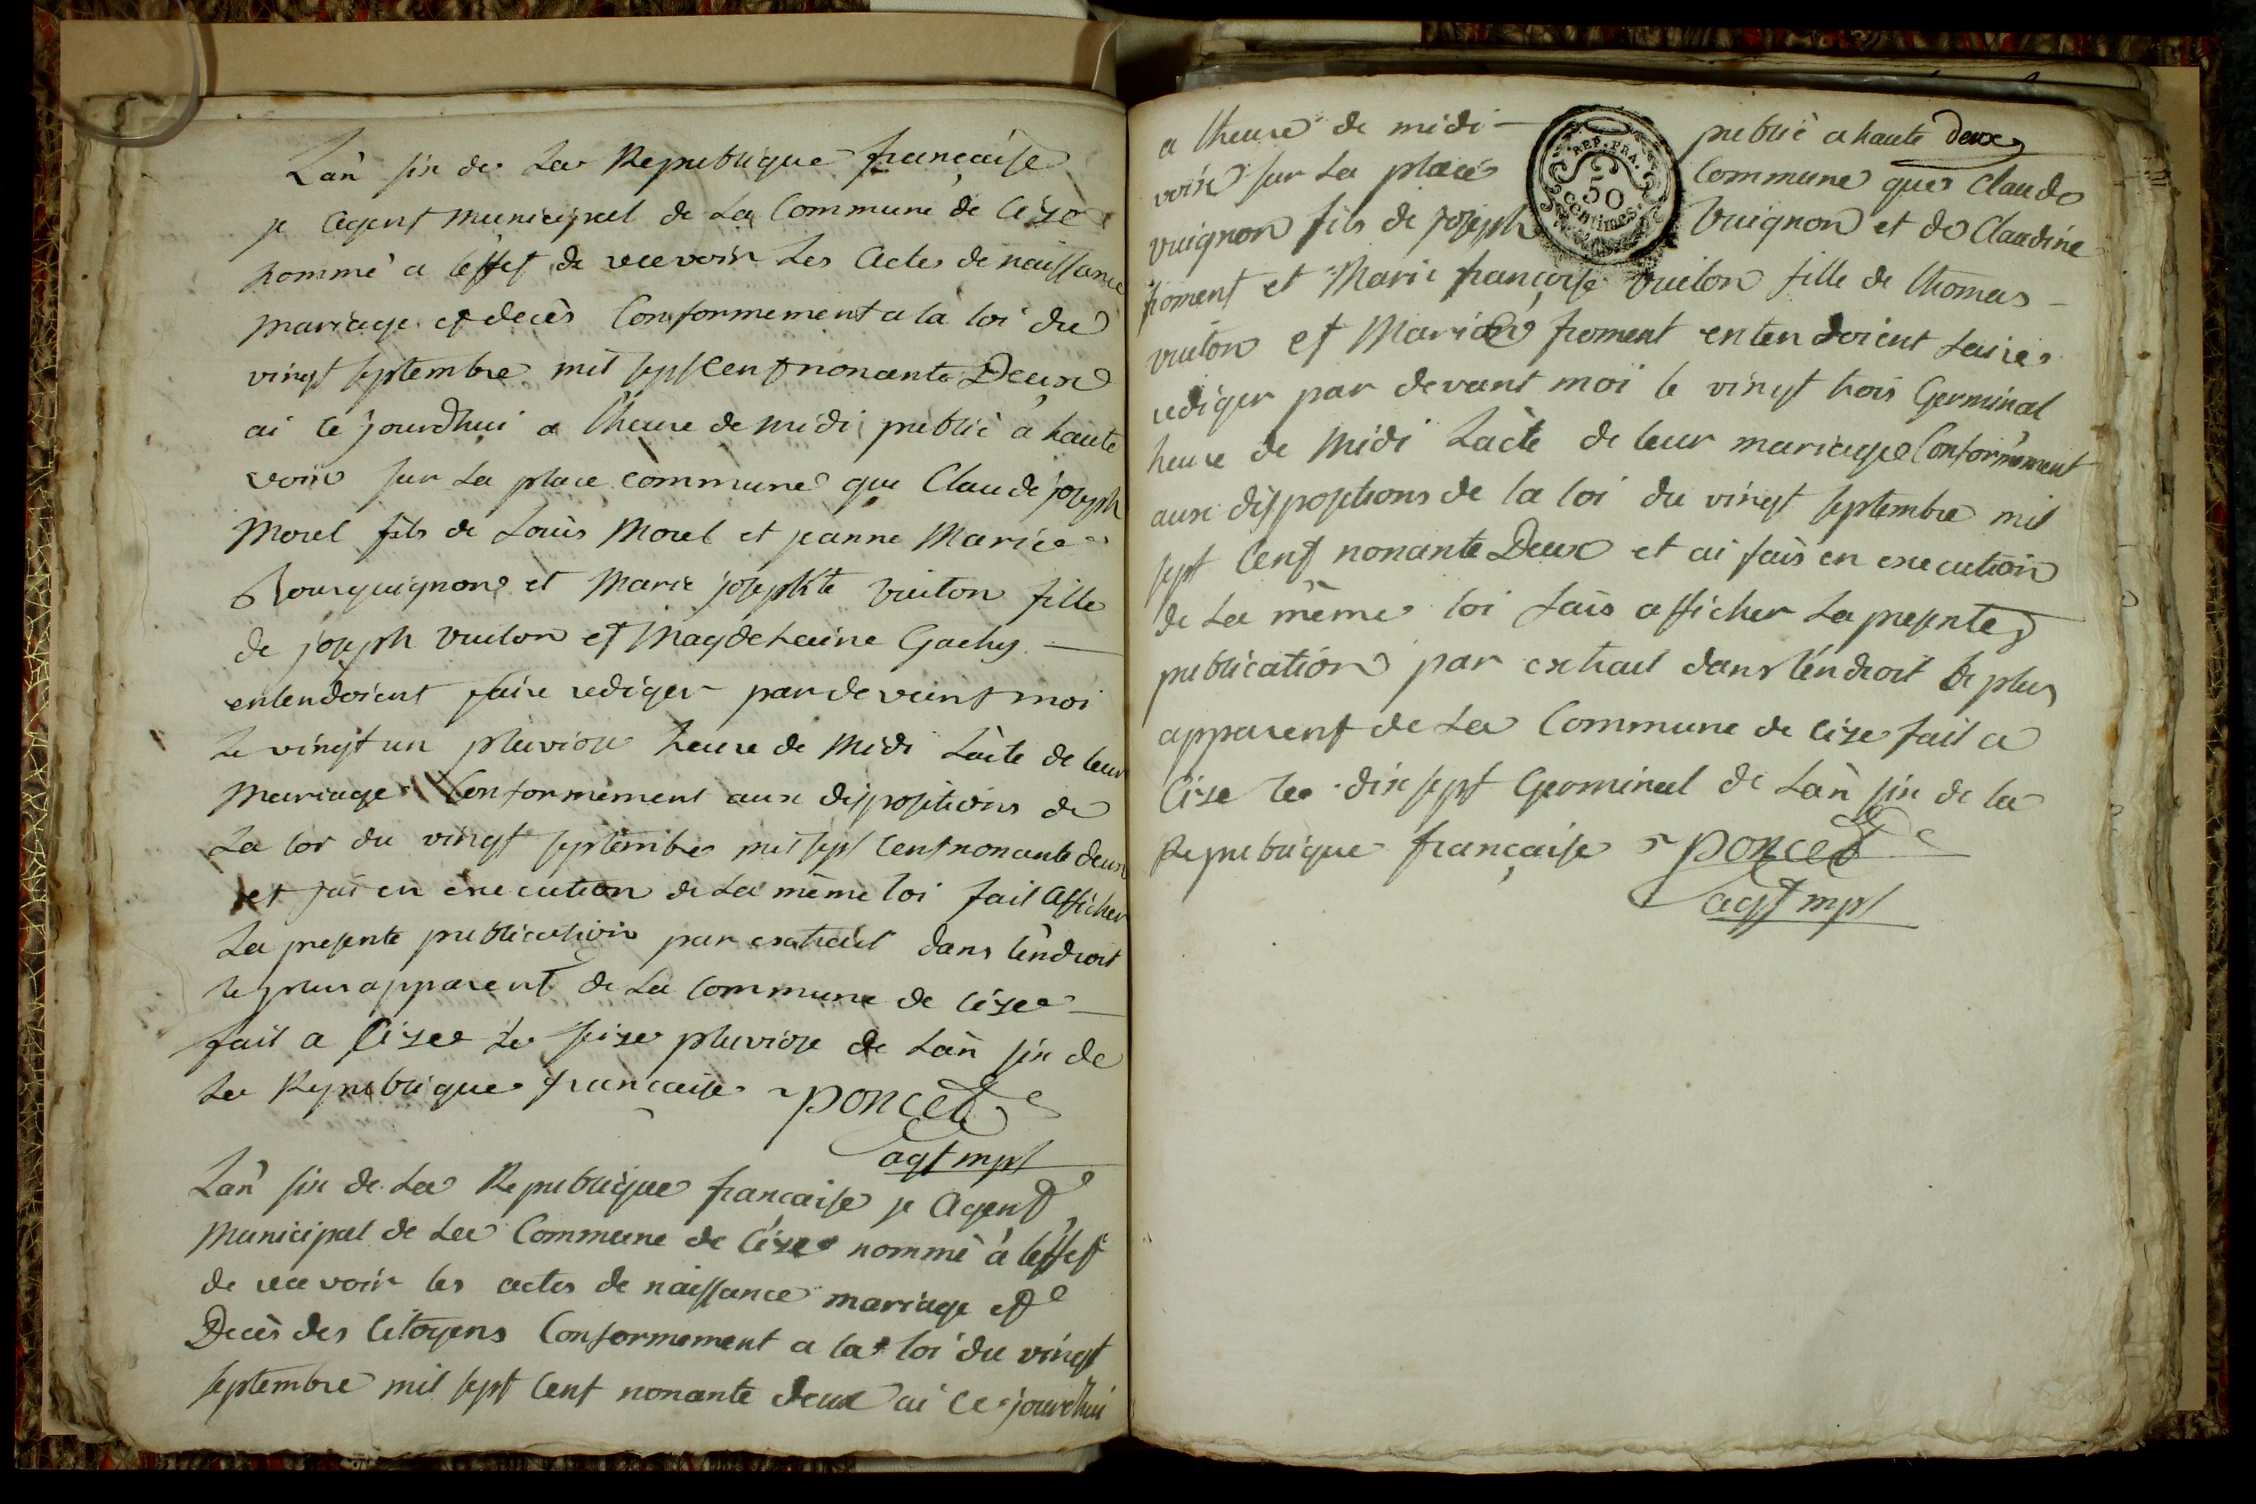 Lan six de La Republique francaise
je agent municipal de La Commune de Cize
nommé a l'effet de recevoir Les Actes de naissance
mariage et decès Conformement a la loi du
vingt septembre mil sept cent nonante Deux
ai ce jourdhui a lheure de midi publié a haute
voix sur La place commune que Claude joseph
Morel fils de Louis Morel et jeanne Marie
Bourguignon et Marie josephte Vuiton fille
de joseph Vuiton et Magdelaine Gachy
entendoient faire rediger par devant moi
Le vingt un pluviose heure de Midi Lacte de leur
Mariage Conformement aux dispositions de
La loi du vingt septembre mil sept Cent nonante deux
et jai en execution de La même loi fait Afficher
La presente publication par extrait dans l'endroit
le plus apparent de La Commune de Cize
fait a Cize Le seize pluviose de Lan six de
La Republique francaise Poncet
agt mpl
Lan six de La Republique francaise je Agent
Municipal de La Commune de Cize nommé a l'effet
de recevoir les actes de naissance mariage et
Decès des Citoyens Conformement a la loi du vingt
septembre mil sept Cent nonante deux ai ce jourdhui
a lheure de midi publié a haute
deux
voix sur La place Commune que Claude
REP. FRA.
50
centimes.
vuignon fils de joseph Vuignon et de Claudine
froment et Marie françoise vuiton fille de thomas
vuiton et Marie froment entendoient faire
rediger par devant moi le vingt trois Germinal
heure de Midi Lacte de leur mariage Conformement
aux dispositions de la loi du vingt septembre mil
sept Cent nonante Deux et ai fais en execution
de La même loi fais afficher La presente
publication par extrait dans l'endroit le plus
apparent de La Commune de Cize fait a
Cize le dix sept Germinal de Lan six de la
Republique française Poncet
agt mpl